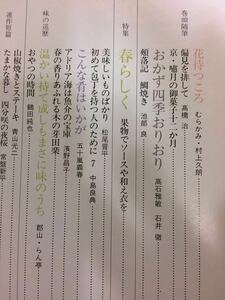 巻頭随筆
花待つころ
むらかみ・村上久朗
偏見を排して
高橋 治
京・嘯月の御菓子十二か月
おかず四季おりおり
高石雅敏 石井 徹
頬落記 鯛焼き
池部 良
特集
春らしく
果物でソースや和え衣を
美味しいものばかり
松尾晋平
初めて包丁を持つ人のために 7
中島良典
こんな肴はいかが
五十嵐義春
アドリア海は魚介の宝庫
濱野昌子
春の香りあふれる木の芽田楽
味の巡歴
温かい持て成しもまさに味のうち
郡山・らん亭
おやつの時間
鶴田純也
連作短篇
山椒焼きとステーキ
青山光二
たまかな暮し 四分咲の夜桜
常盤新平